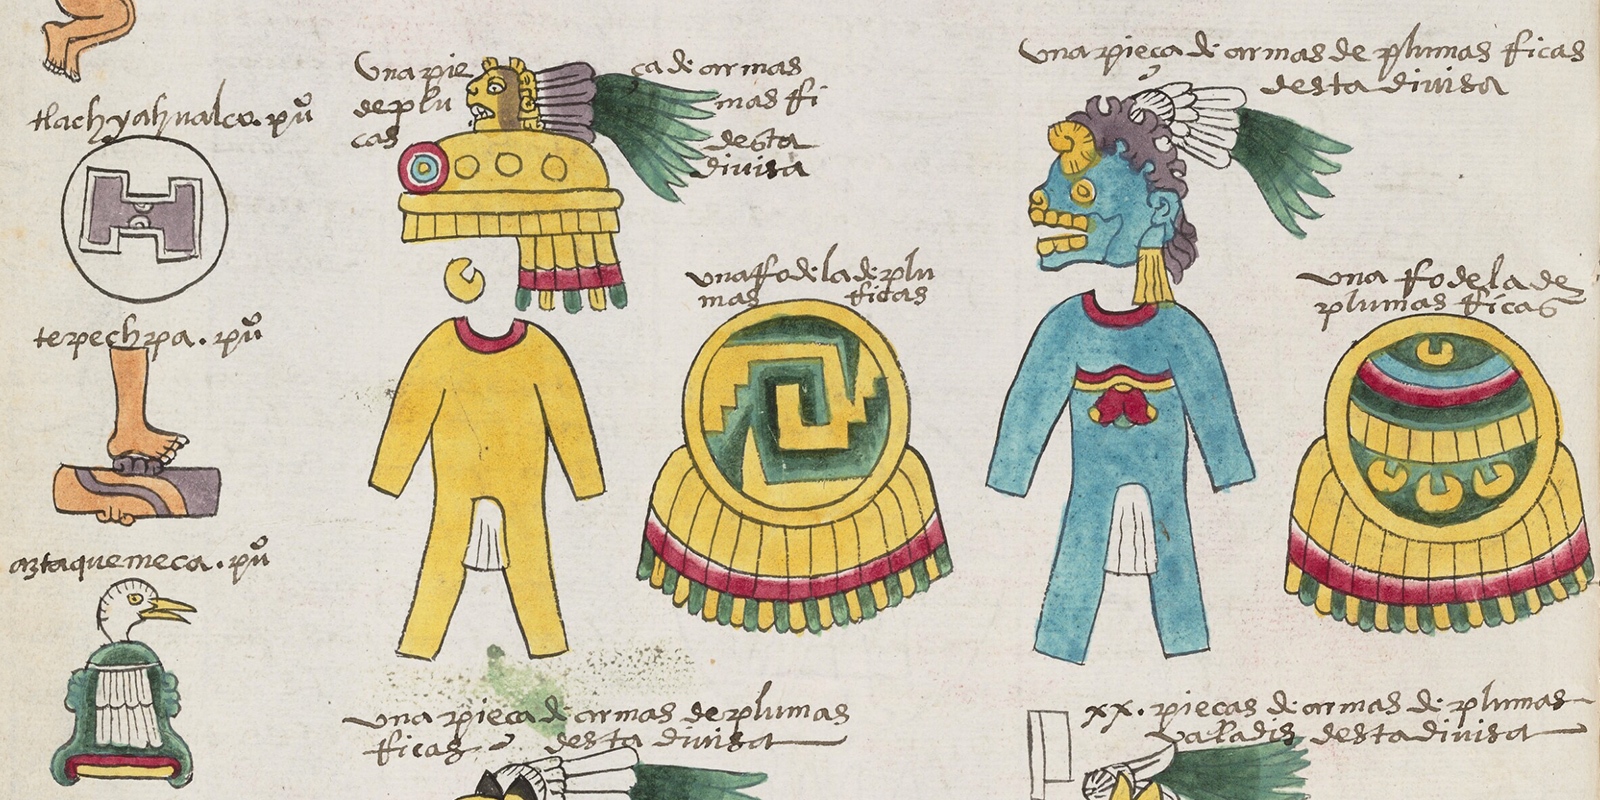 tlachyahualco. puº
tepechpa. puº
aztaquemeca. puº
una pieça de armas
de plumas ricas
desta
divisa
una rodela de plu
mas ricas
una pieça de armas de plumas ricas
desta divisa
una rodela de
plumas ricas
una pieça de armas de plumas
ricas desta divisa
xx. pieças de armas de plumas
valadis desta divisa